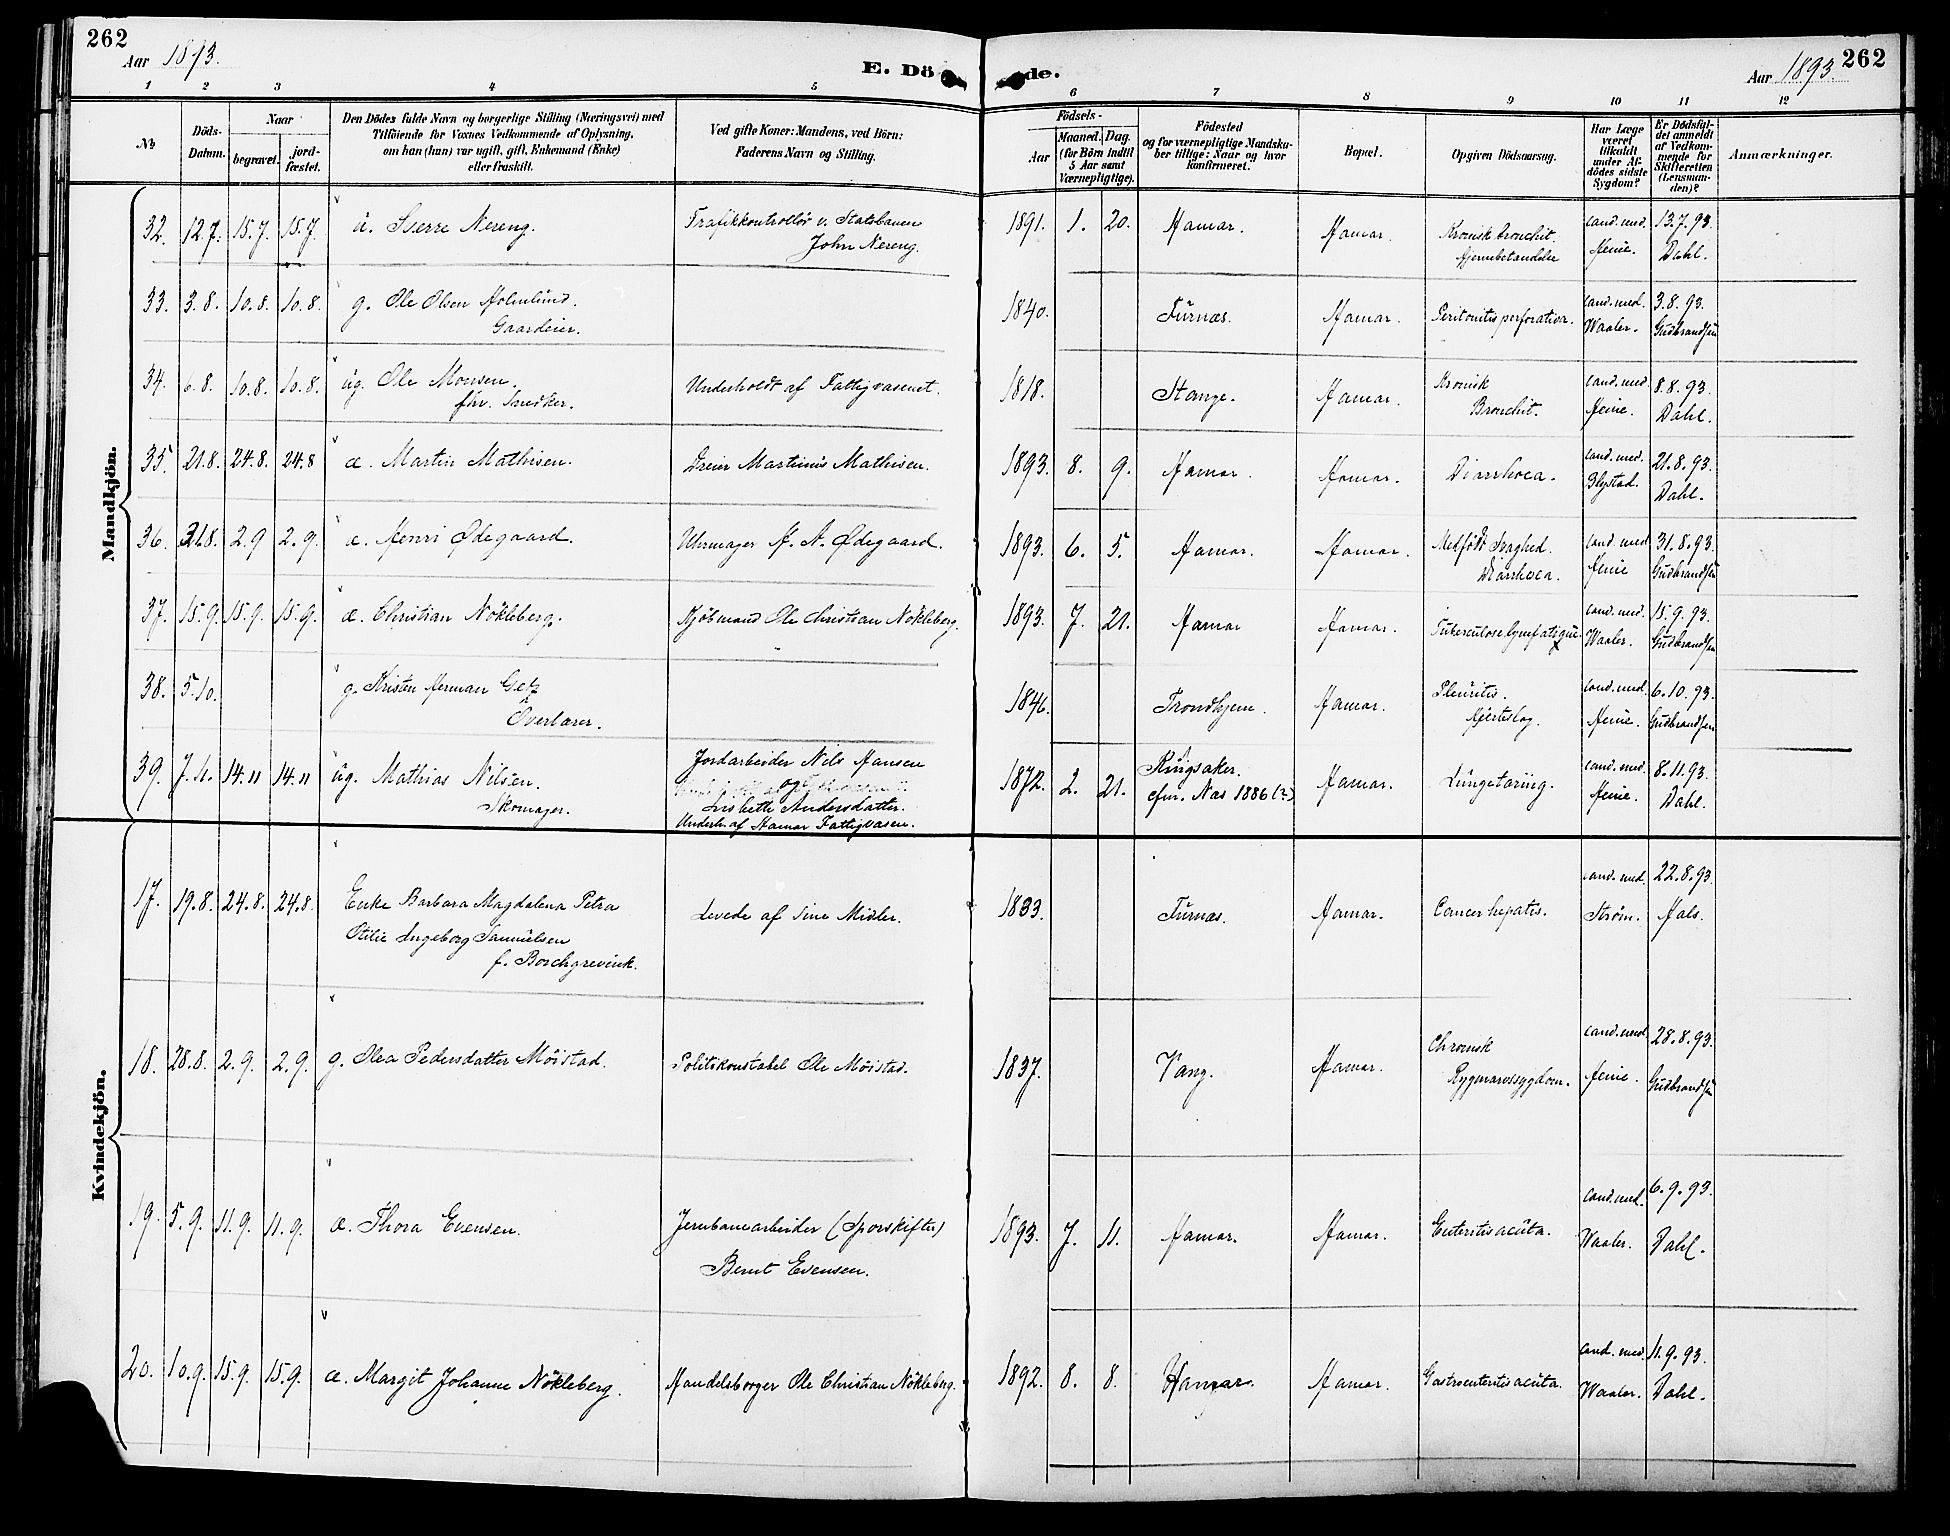 262
Aar 1893.
E. Dö
1 2 3 4 5
No
Döds-Datum.
Naar
begravet.
jordfæstet.
Den Dödes fulde Navn og borgerlige Stilling (Næringsvei) med
Tilföiende for Voxnes Vedkommende af Oplysning,
om han (hun) var ugift, gift, Enkemand (Enke)
eller fraskilt.
Ved gifte Koner: Mandens, ved Börn:
Faderens Navn og Stilling.
de.
262
Aar 1893.
6 7 8 9 10 11 12
Födsels-
Aar
Maaned. Dag.
(for Börn indtil
5 Aar samt
Værnepligtige).
Födested
og for værnepligtige Mandskaber tillige: Naar og hvor
konfirmeret.
Bopæl.
Opgiven Dödsaarsag.
Har Læge
været
tilkaldt
under Afdödes sidste
Sygdom?
Er Dødsfaldet anmeldt
af Vedkommende for
Skifteretten
(Lensmanden)?
Anmærkninger.
Mandkjön.
32. 12.7. 15.7. 15.7. u. Sverre Nereng. Trafikkontrollör v. Statsbanen 1891. 1. 20. Hamar. Hamar. Kronisk bronchit. cand. med. 13.7.93.
John Nereng. Hjernebetændelse Heine. Dahl.
33. 3.8. 10.8. 10.8. g. Ole Olsen Holmlund. 1840. Furnæs. Hamar. Peritonitis perforativa. cand. med. 3.8.93.
Gaardeier. Waaler. Gudbrandsen
34. 6.8. 10.8. 10.8. ug. Ole Monsen. Underholdt af Fattigvæsenet. 1818. Stange. Hamar. Kronisk cand. med. 8.8.93.
fhv. Snedker. Bronchit. Heine. Dahl.
35. 21.8. 24.8. 24.8 æ. Martin Mathisen. Dreier Martinus Mathisen. 1893. 8. 9. Hamar. Hamar. Diarrhoea. cand. med. 21.8.93.
Blystad. Dahl.
36. 31.8. 2.9 2.9. æ. Henri Ødegaard. Uhrmager H. A. Ødegaard. 1893. 6. 5. Hamar. Hamar. Medfödt Svaghed. cand. med. 31.8.93.
Diarrhoea. Heine Gudbrandsen
37. 15.9. 15.9. 15.9. æ. Christian Nökleberg. Kjöbmand Ole Christian Nökleberg. 1893. 7. 21. Hamar Hamar. Tuberculose lymfatique cand. med. 15.9.93.
Waaler. Gudbrandsen
38. 5.10. g. Kristen Herman Getz 1846. Trondhjem. Hamar. Pleuritis. cand. med. 6.10.93.
Overlærer. Hjerteslag. Heine. Gudbrandsen
39. 7.11. 14.11 14.11 ug. Mathias Nilsen. Jordarbeider Nils Hansen 1872. 2. 21. Ringsaker. Hamar. Lungetæring. cand. med. 8.11.93.
Skomager. og cfm. Næs 1886 (?) Heine. Dahl.
Lisbeth Andersdatter.
Underh. af Hamar Fattigvæsen.
Kvindekjön.
17. 19.8. 24.8. 24.8. Enke Barbara Magdalena Petra Levede af sine Midler. 1833. Furnæs. Hamar. Cancer hepatis. cand. med. 22.8.93.
Otilie Ingeborg Samuelsen Ström. Hals.
f. Borchgrevink.
18. 28.8. 2.9. 2.9. g. Olea Pedersdatter Möistad. Politikonstabel Ole Möistad. 1837. Vang. Hamar. Chronisk cand. med. 28.8.93.
Rygmarvssygdom. Heine. Gudbrandsen
19. 5.9. 11.9. 11.9. æ. Thora Evensen. Jernbanearbeider (Sporskifter) 1893. 7. 11. Hamar. Hamar. Enteritis acuta. cand. med. 6.9.93.
Bernt Evensen. Waaler. Dahl.
20. 10.9. 15.9. 15.9. æ. Margit Johanne Nökleberg. Handelsborger Ole Christian Nökleberg. 1892. 8. 8. Hamar. Hamar. Gastroenteritis acuta. cand. med. 11.9.93.
Waaler. Dahl.